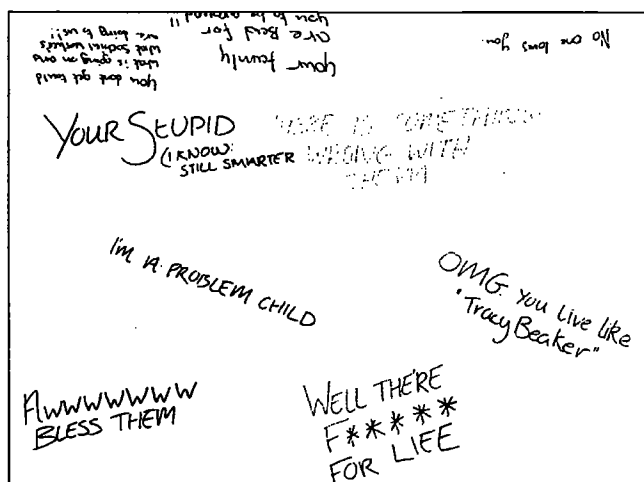 You dont get told
what is going on and
what social worker's
are doing to us!!
your family
are Bad for
you to be around!!
No one loves you.
YOUR STUPID
(I KNOW:
STILL SMARTER
THERE IS SOMETHING
WRONG WITH
THEM
I'M A PROBLEM CHILD
OMG. You live like
"Tracy Beaker"
Awwwwwww
BLESS THEM
WELL THE'RE
F*****
FOR LIEE